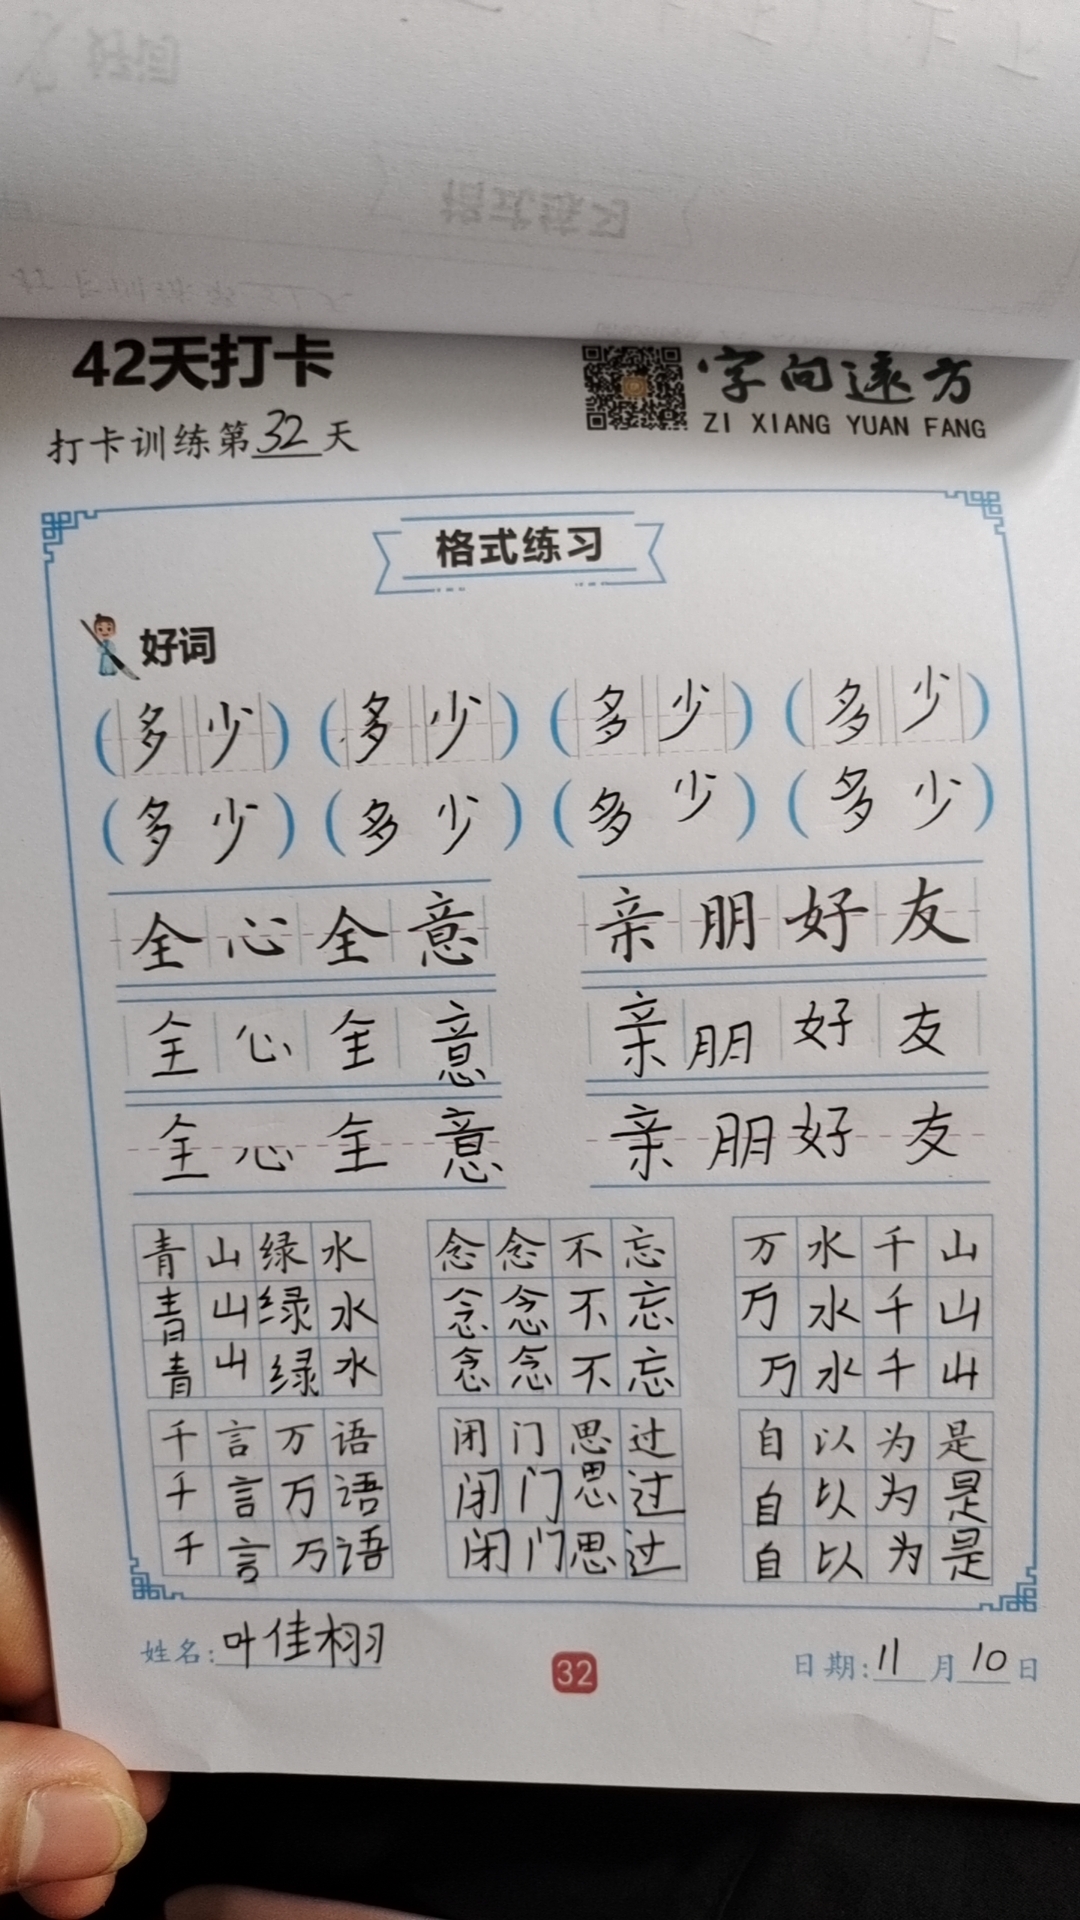 42天打卡
字向遠方
ZI XIANG YUAN FANG
打卡训练第32天
格式练习
好词
(多少) (多少) (多少) (多少)
(多少) (多少) (多少) (多少)
全心全意 亲朋好友
全心全意 亲朋好友
全心全意 亲朋好友
青山绿水 念念不忘 万水千山
青山绿水 念念不忘 万水千山
青山绿水 念念不忘 万水千山
千言万语 闭门思过 自以为是
千言万语 闭门思过 自以为是
千言万语 闭门思过 自以为是
姓名:叶佳栩 32 日期:11月10日